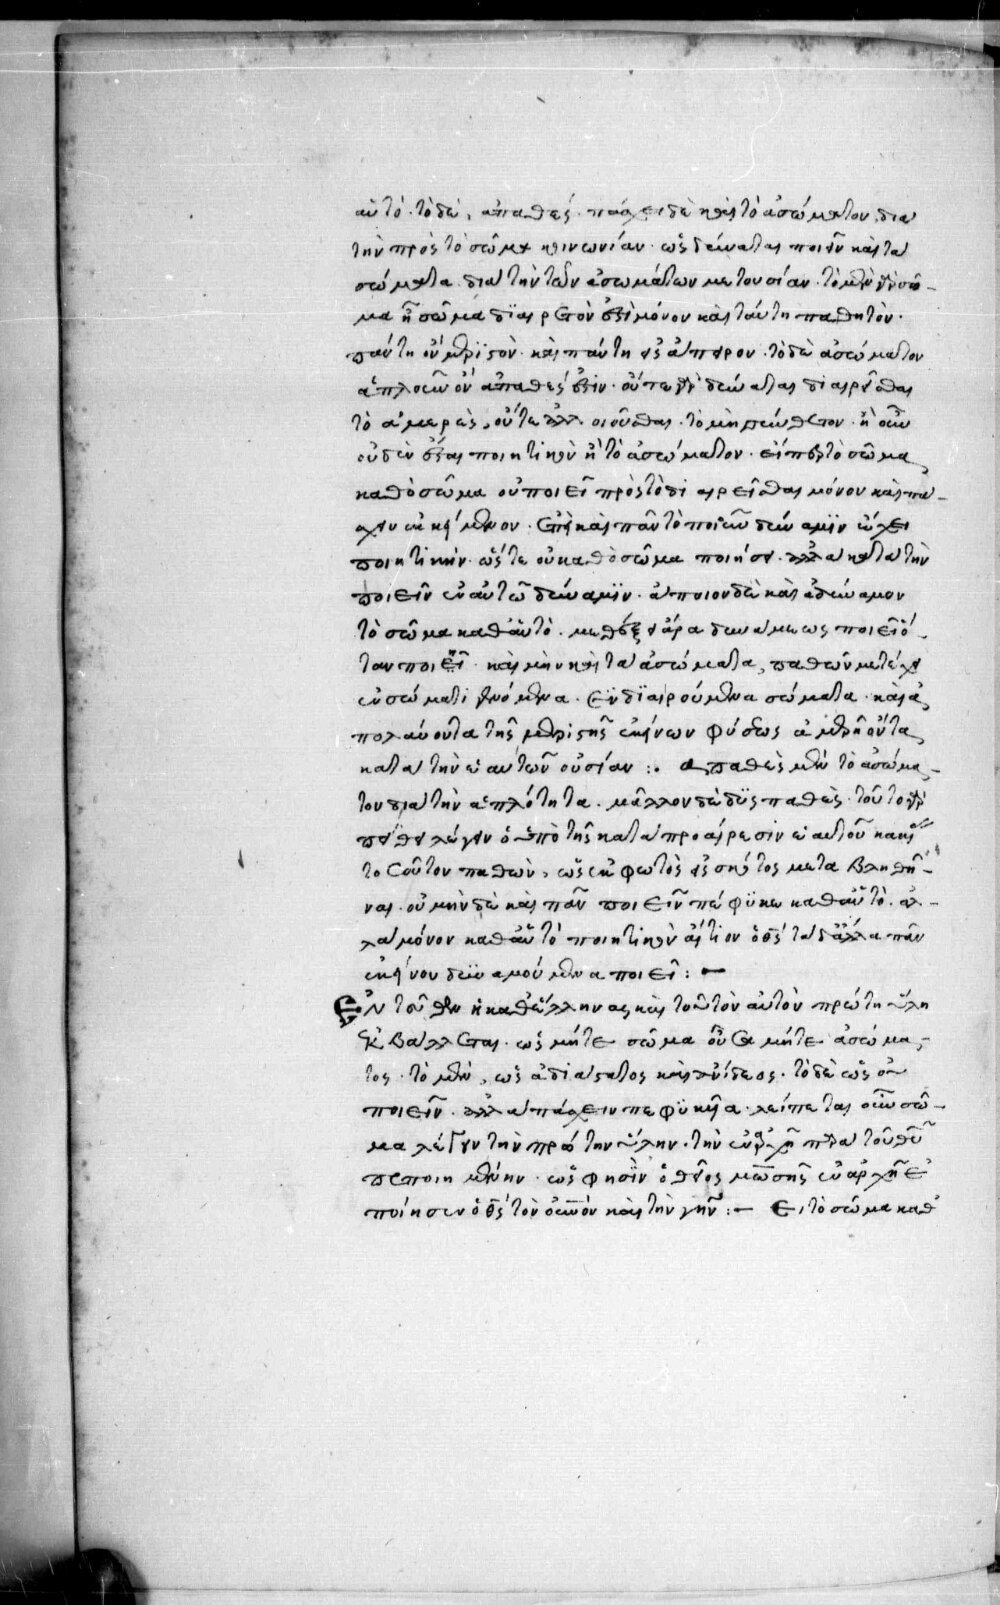 αὑτό· τὸ δὲ, ἀπαθές· πάσχει δὲ καὶ τὸ ἀσώματον, δια
τὴν πρὸς τὸ σῶμα κοινωνίαν· ὡς δύναται ποιεῖν καὶ τὰ
σώματα δια τὴν τῶν ἀσωμάτων μετουσίαν· τὸ μὲν γὰρ σῶ-
μα ᾗ σῶμα διαιρετὸν ἐστὶ μόνον καὶ ταύτῃ παθητὸν·
πάντη ὂν μεριστὸν· καὶ πάντη εἰς ἄπειρον· τὸ δὲ ἀσώματον
ἁπλοῦν ὂν ἀπαθές ἐστιν· οὔτε γὰρ δύναται διαιρεῖσθαι
τὸ ἀμερὲς, οὔτε ἀλλοιοῦσθαι τὸ μὴ σύνθετον· ἢ οὖν
οὐδὲν ἔσται ποιητικὸν ἢ τὸ ἀσώματον· εἴπερ τὸ σῶμα
καθὸ σῶμα οὐ ποιεῖ πρὸς τὸ διαιρεῖσθαι μόνον καὶ πά-
σχειν ἐκκείμενον· ἐπεὶ καὶ πᾶν τὸ ποιοῦν δύναμιν ἔχει
ποιητικήν· ὥστε οὐ καθὸ σῶμα ποιήσει· ἀλλὰ κατὰ τὴν
ποιεῖν ἐν αὐτῶ δύναμιν· ἄποιον δὲ καὶ ἀδύναμον
τὸ σῶμα καθ' αὑτὸ· μεθέξει ἄρα δυνάμεως ποιεῖ ὅ-
ταν ποιεῖ· καὶ μὴν καὶ τὰ ἀσώματα, παθῶν μετέχει
ἐν σώματι γενόμενα· συνδιαιρούμενα σώματα· καὶ ἀ-
πολαύοντα τῆς μεριστῆς ἐκείνων φύσεως ἀμερῆ ὄντα
κατὰ τὴν ἑαυτῶν οὐσίαν :· ἀπαθὲς μὲν τὸ ἀσώμα-
τον δια τὴν ἁπλότητα· μᾶλλον δὲ δυσπαθὲς· τοῦτο γὰρ
πείθει λέγειν ὁ ὑπὸ τῆς κατὰ προαίρεσιν ἑαυτοῦ κακί
τοσοῦτον παθὼν, ὡς ἐκ φωτὸς εἰς σκότος μεταβληθῆ-
ναι· οὐ μὴν δὲ καὶ πᾶν ποιεῖν πέφυκε καθ' αὑτὸ· ἀλ-
λὰ μόνον καθ' αὑτὸ ποιητικὸν αἴτιον ὁ θεός· τὰ δ' ἄλλα πᾶν
ἐκείνου δυναμούμενα ποιεῖ :—
Ἐντεῦθεν ἡ καθ' ἕλληνας καὶ τοῦτον αὐτὸν πρώτη ὕλη
ἐκβάλλεται· ὡς μήτε σῶμα οὖσα μήτε ἀσώμα-
τος· τὸ μὲν, ὡς ἀδιάστατος καὶ ἀνείδεος· τὸ δὲ ὡς οὐ
ποιεῖν· ἀλλὰ πάσχειν πεφυκυῖα· λείπεται οὖν σῶ-
μα λέγειν τὴν πρώτην ὕλην· τὴν ἐν ἀρχῇ παρὰ τοῦ θεοῦ
πεποιημένην· ὥς φησὶν ὁ θεῖος μωσῆς ἐν ἀρχῇ ἐ-
ποίησεν ὁ θεός τὸν οὐνὸν καὶ τὴν γῆν :— Εἰ τὸ σῶμα καθ'